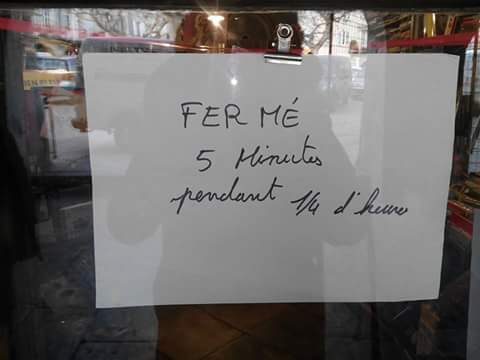 FERMÉ
5 Minutes
pendant 1/4 d'heure